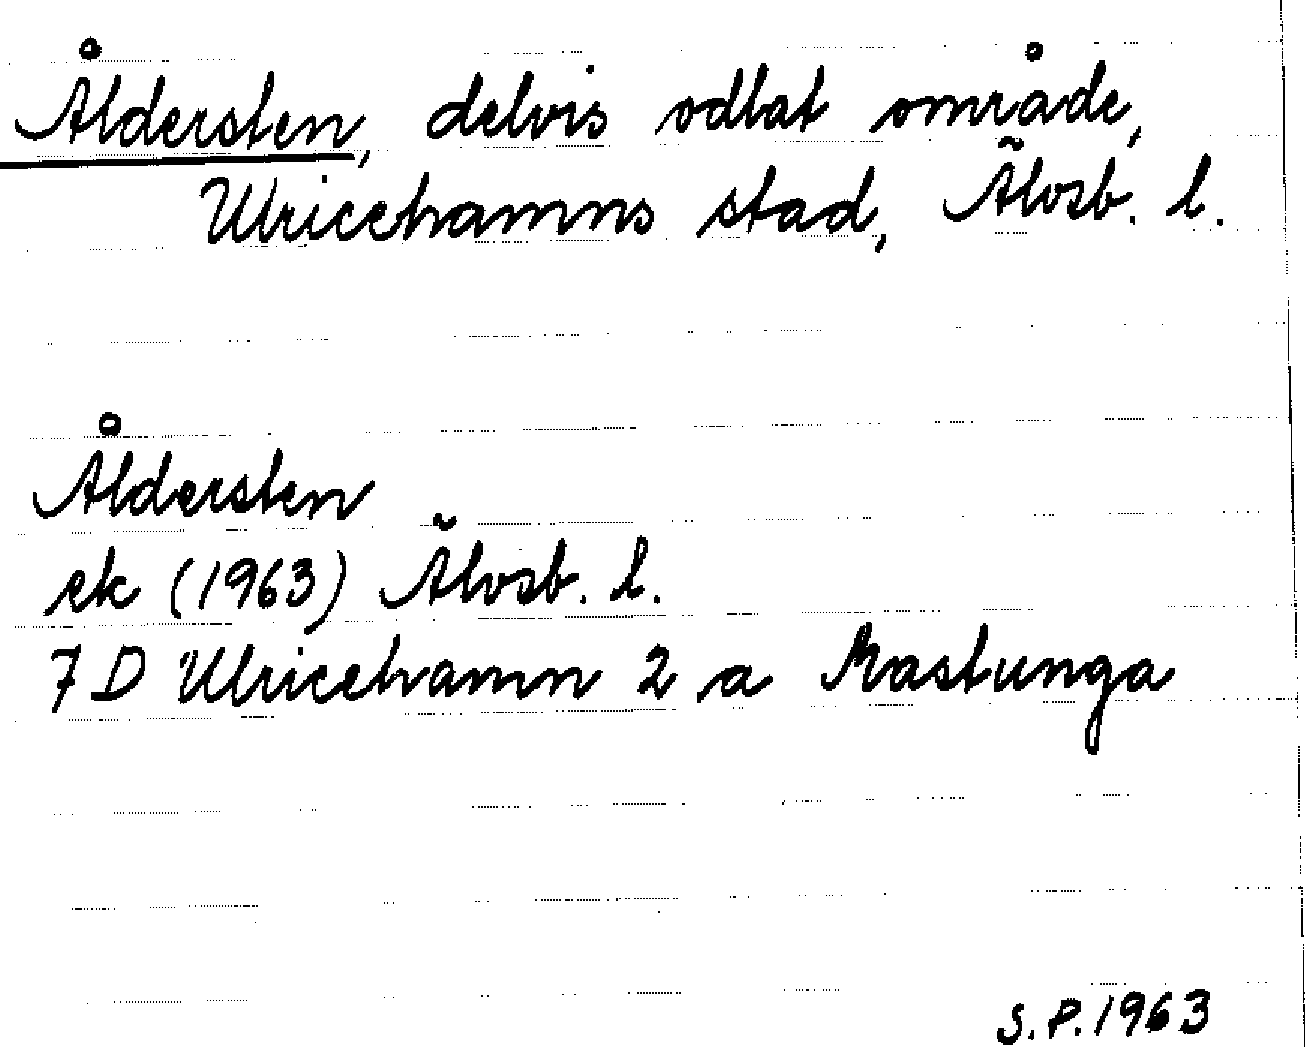 Åldersten, delvis odlat område,
Ulricehamns stad, Älvsb. l.
Åldersten
ek (1963) Älvsb. l.
7 D Ulricehamn 2 a Rastunga
S.P. 1963